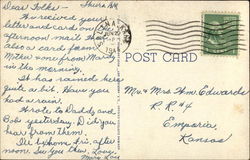 Thurs. AM
Dear Folks -
Received your
letter and card on
afternoon mail, then
also a card from
Mother & one from Mary
in the morning.
It has rained here
quite a bit. Have you
had a rain.
Wrote to Daddy and
Bob yesterday. Did you
hear from them.
I'll be home Fri. after-
noon. See you then. Love
POST CARD
Mr & Mrs Wm Edwards
RR #4
Emporia,
Kansas